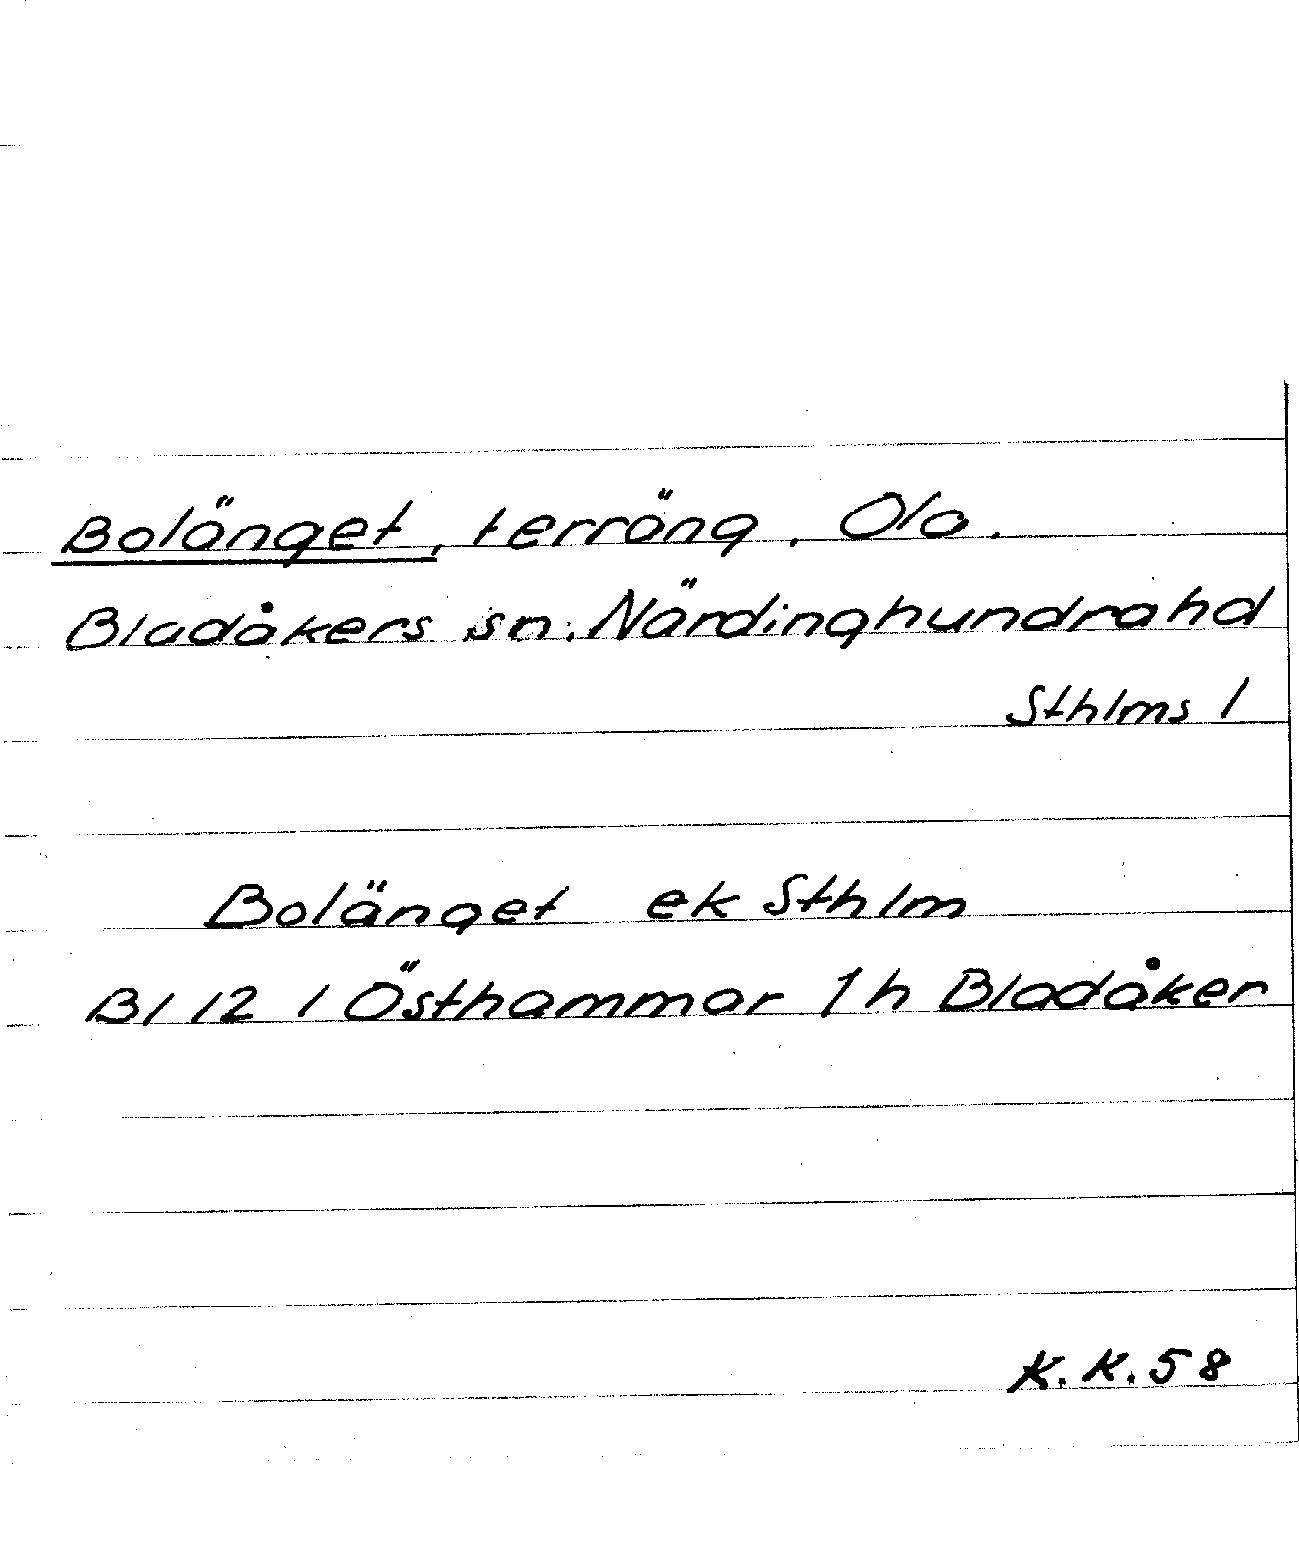 Bolänget, terräng, Ola.
Bladåkers sn. Närdinghundra hd
Sthlms l
Bolänget ek Sthlm
Bl 12 1 Östhammar 1h Bladåker
K.K.58